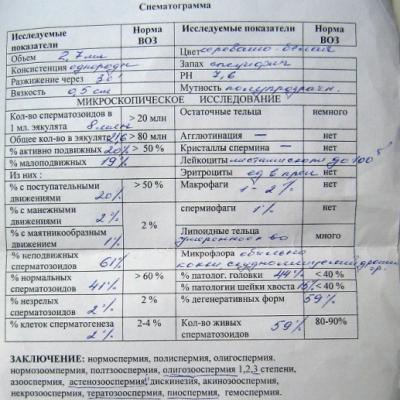 Спематограмма
Исследуемые показатели Норма ВОЗ Исследуемые показатели Норма ВОЗ
Объем 2,7 мл Цвет серовато-белый
Консистенция однородн Запах специфич
Разжижение через 30' РН 7,6
Вязкость 0,5 см Мутность полупрозрачн.
МИКРОСКОПИЧЕСКОЕ ИССЛЕДОВАНИЕ
Кол-во сперматозоидов в 1 мл. эякулята 8 млн > 20 млн Остаточные тельца немного
Общее кол-во в эякуляте > 80 млн Агглютинация — нет
% активно подвижных 20% > 50 % Кристаллы спермина — нет
% малоподвижных 19% Лейкоциты местами до 100
Из них : Эритроциты ед в преп нет
% с поступательными движениями 20% > 50 % Макрофаги 1-2% нет
% с манежными движениями 2% 2% спермиофаги 1% нет
% с маятникообразным движением 1% Липоидные тельца много
% неподвижных сперматозоидов 61% Микрофлора обильно кокки,
% нормальных сперматозоидов 41% > 60 % % патолог. головки 44% < 40 %
% патологии шейки хвоста 15% < 40 %
% незрелых сперматозоидов 2% 2 % % дегенеративных форм 59%
% клеток сперматогенеза 2% 2-4 % Кол-во живых сперматозоидов 59% 80-90%
ЗАКЛЮЧЕНИЕ: нормоспермия, полиспермия, олигоспермия.
нормозоомпермия, полтзооспермия, олигозооспермия 1,2,3 степени,
азооспермия, астенозооспермия, дискинезия, акинозооспермия,
некрозооспермия, тератозооспермия, пиоспермия, гемоспермия.